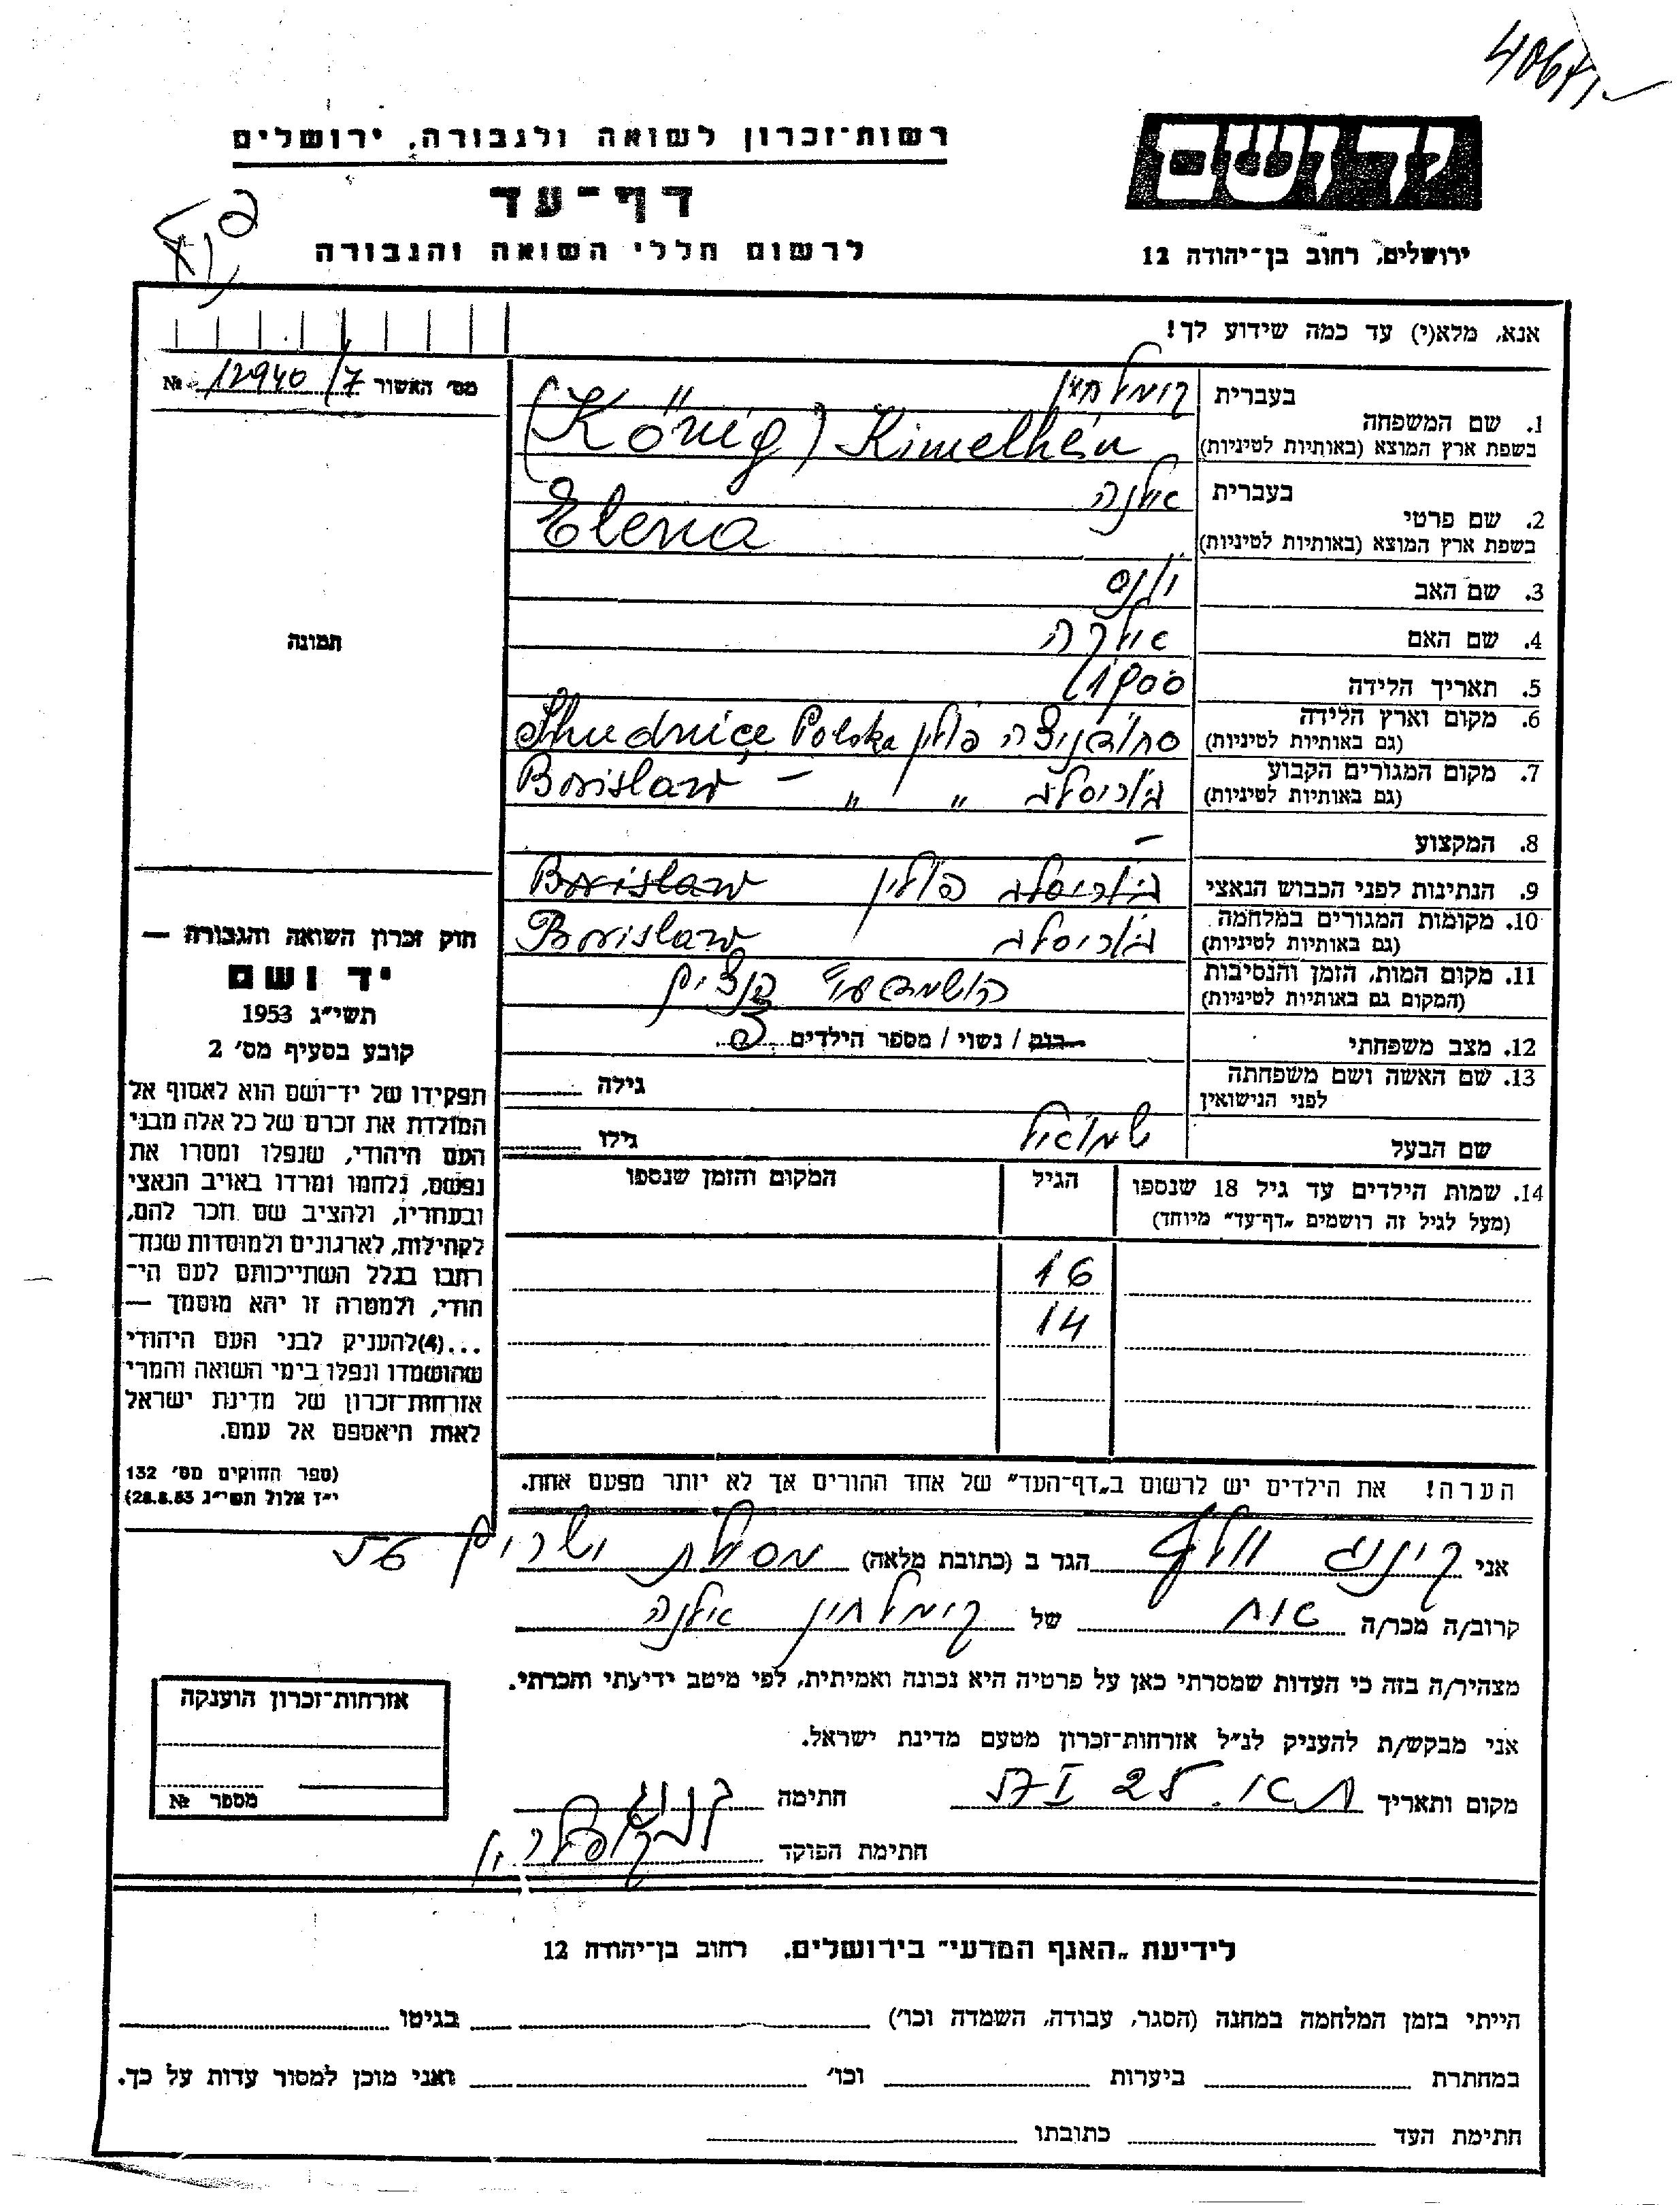 רשות־זכרון לשואה ולגבורה, ירושלים
דף־עד
לרשום חללי השואה והגבורה
יד ושם
ירושלים, רחוב בן־יהודה 12
אנא, מלא(י) עד כמה שידוע לך!
מס׳ האשור 12940/7 №
1. שם המשפחה בעברית קימלחין
בשפת ארץ המוצא (באותיות לטיניות) (König) Kimelhén
2. שם פרטי בעברית אילנה
בשפת ארץ המוצא (באותיות לטיניות) Elena
3. שם האב יונס
4. שם האם
5. תאריך הלידה 1900
6. מקום וארץ הלידה סחודניצה פולין Polska
(גם באותיות לטיניות)
7. מקום המגורים הקבוע בוריסלב " " – Borislaw
(גם באותיות לטיניות)
8. המקצוע –
9. הנתינות לפני הכבוש הנאצי בוריסלב פולין Borislaw
10. מקומות המגורים במלחמה בוריסלב Borislaw
(גם באותיות לטיניות)
11. מקום המות, הזמן והנסיבות
(המקום גם באותיות לטיניות)
12. מצב משפחתי רווק / נשוי / מספר הילדים
13. שם האשה ושם משפחתה גילה
לפני הנישואין
שם הבעל שמואל גילו
14. שמות הילדים עד גיל 18 שנספו הגיל המקום והזמן שנספו
(מעל לגיל זה רושמים „דף־עד” מיוחד)
16
14
הערה! את הילדים יש לרשום ב„דף־העד” של אחד ההורים אך לא יותר מפעם אחת.
תמונה
חוק זכרון השואה והגבורה —
יד ושם
תשי״ג 1953
קובע בסעיף מס׳ 2
תפקידו של יד־ושם הוא לאסוף אל
המולדת את זכרם של כל אלה מבני
העם היהודי, שנפלו ומסרו את
נפשם, נלחמו ומרדו באויב הנאצי
ובעוזריו, ולהציב שם וזכר להם,
לקהילות, לארגונים ולמוסדות שנח־
רבו בגלל השתייכותם לעם הי־
הודי, ולמטרה זו יהא מוסמך —
...(4)להעניק לבני העם היהודי
שהושמדו ונפלו בימי השואה והמרי
אזרחות־זכרון של מדינת ישראל
לאות היאספם אל עמם.
(ספר החוקים מס׳ 132
י״ז אלול תשי״ג 28.8.53)
אני קינג וולף הגר ב (כתובת מלאה) מסילת ישרים 56
קרוב/ה מכר/ה אח של קימלחין אילנה
מצהיר/ה בזה כי העדות שמסרתי כאן על פרטיה היא נכונה ואמיתית, לפי מיטב ידיעתי והכרתי.
אני מבקש/ת להעניק לנ״ל אזרחות־זכרון מטעם מדינת ישראל.
מקום ותאריך חתימה
חתימת הפוקד
אזרחות־זכרון הוענקה
מספר №
לידיעת „האגף המדעי” בירושלים, רחוב בן־יהודה 12
הייתי בזמן המלחמה במחנה (הסגר, עבודה, השמדה וכו׳) בגיטו
במחתרת ביערות וכו׳ ואני מוכן למסור עדות על כך.
חתימת העד כתובתו